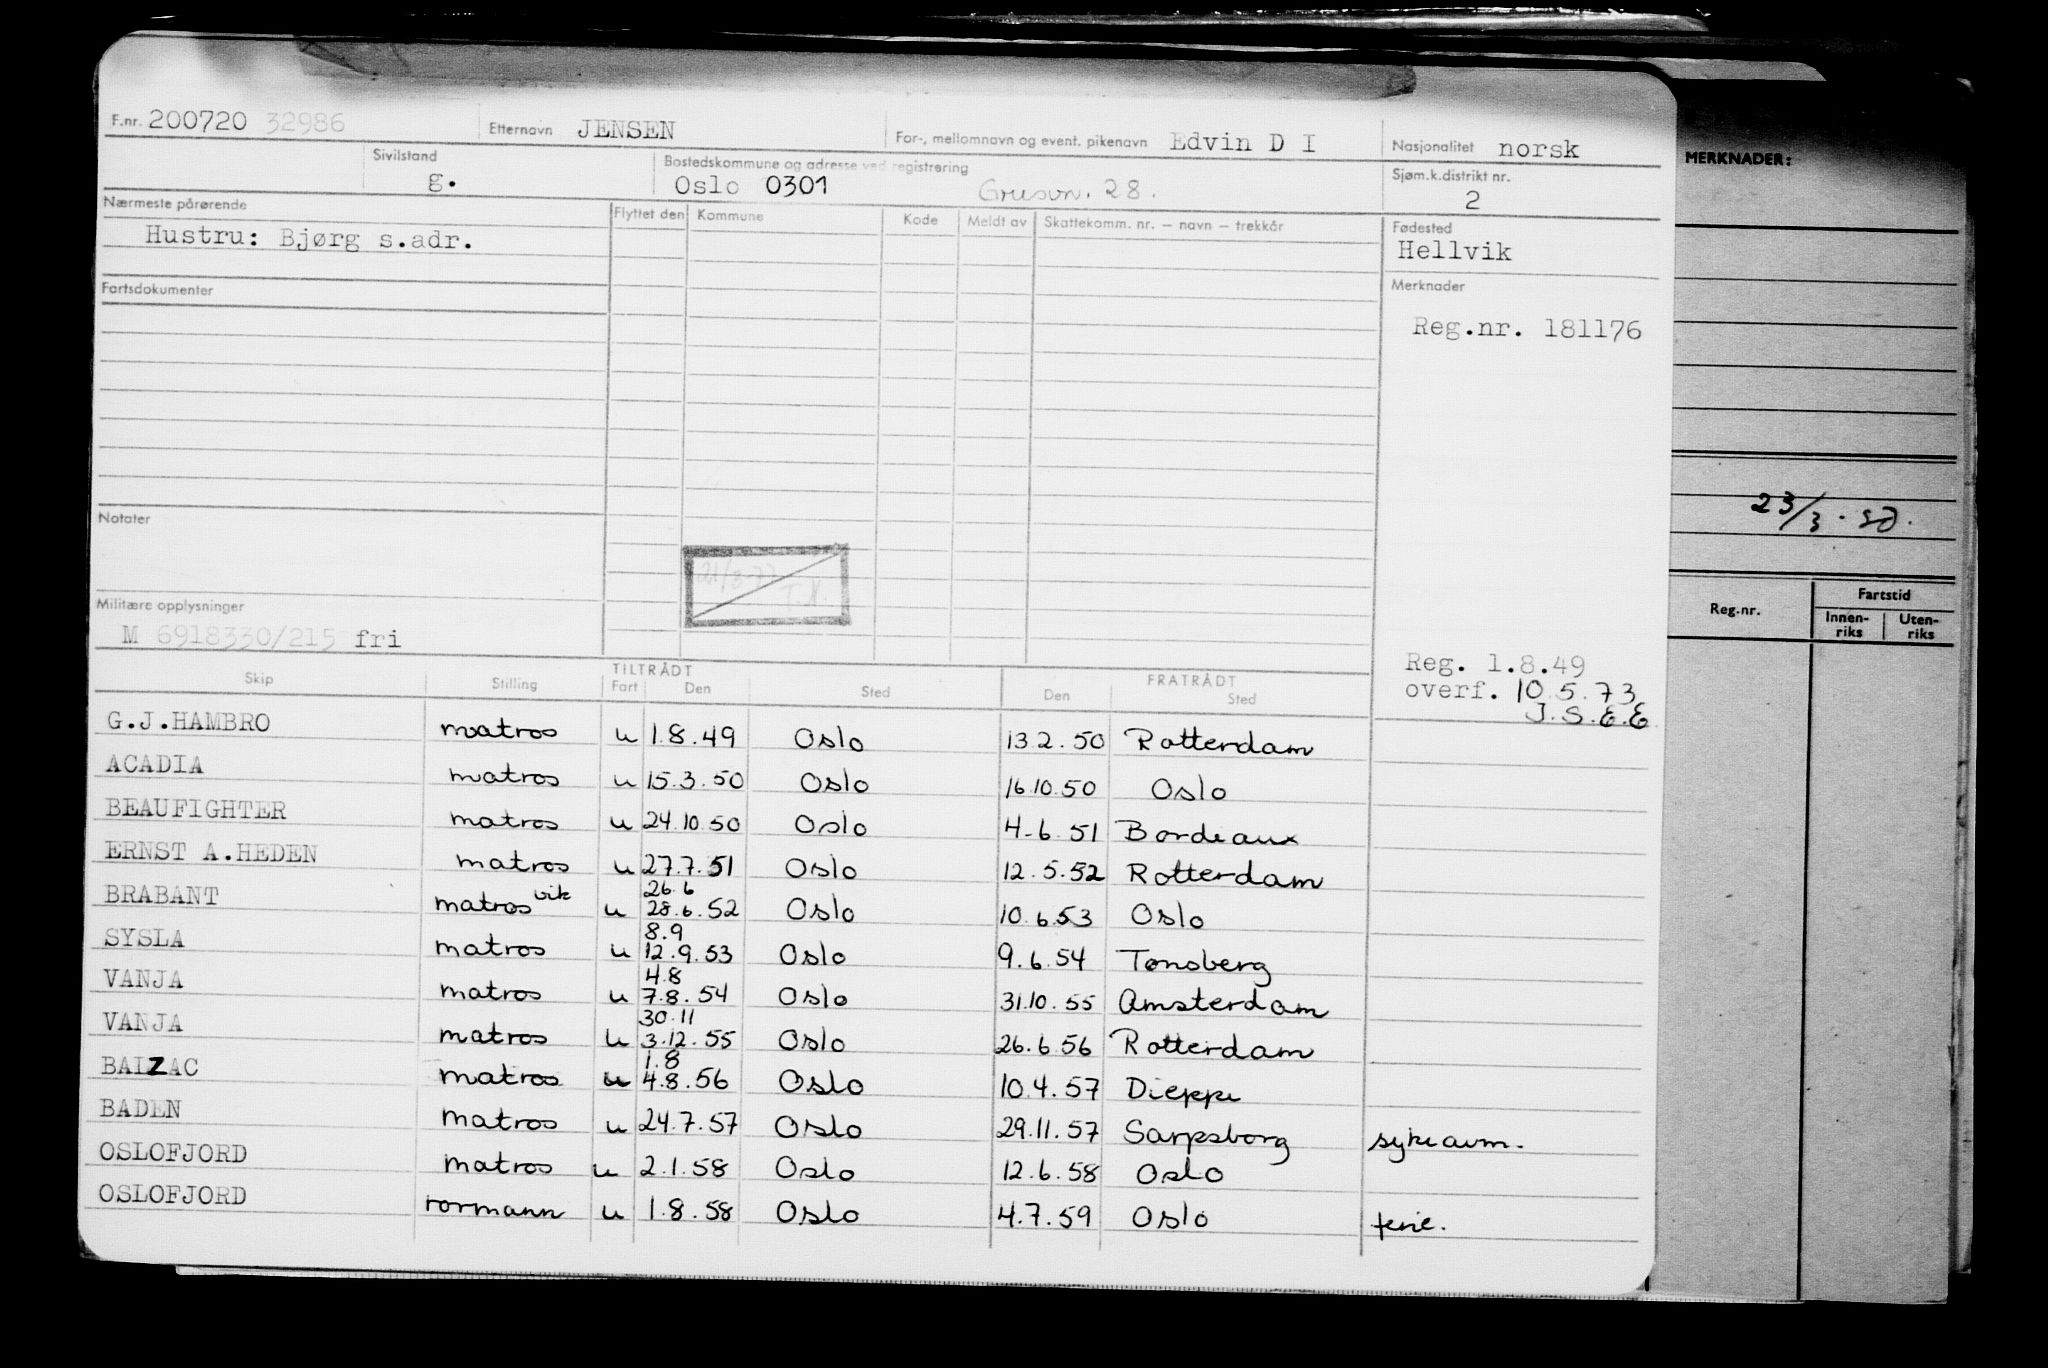 F.nr. 200720 32986 Etternavn JENSEN For-, mellomnavn og event. pikenavn Edvin D I Nasjonalitet norsk
Sivilstand g. Bostedskommune og adresse ved registrering Oslo 0301 28. Sjøm.k.distrikt nr. 2
Nærmeste pårørende Flyttet den Kommune Kode Meldt av Skattekomm. nr. – navn – trekkår Fødested
Hustru: Bjørg s.adr. Hellvik
Fartsdokumenter Merknader
Reg.nr. 181176
Notater
21/3-77 T.H.
Militære opplysninger
M 6918330/215 fri
Reg. 1.8.49
overf. 10.5.73
J.S.E.E.
TILTRÅDT FRATRÅDT
Skip Stilling Fart Den Sted Den Sted
G.J.HAMBRO matros u 1.8.49 Oslo 13.2.50 Rotterdam
ACADIA matros u 15.3.50 Oslo 16.10.50 Oslo
BEAUFIGHTER matros u 24.10.50 Oslo 4-6.51 Bordeaux
ERNST A.HEDEN matros u 27.7.51 Oslo 12.5.52 Rotterdam
BRABANT matros vik u 26.6 28.6.52 Oslo 10.6.53 Oslo
SYSLA matros u 8.9 12.9.53 Oslo 9.6.54 Tønsberg
VANJA matros u 4.8 7.8.54 Oslo 31.10.55 Amsterdam
VANJA matros u 30.11 3.12.55 Oslo 26.6.56 Rotterdam
BALZAC matros u 1.8 4.8.56 Oslo 10.4.57 Dieppe
BADEN matros u 24.7.57 Oslo 29.11.57 Sarpsborg sykeavm.
OSLOFJORD matros u 2.1.58 Oslo 12.6.58 Oslo
OSLOFJORD rormann u 1.8.58 Oslo 4.7.59 Oslo ferie.
MERKNADER:
23/3.
Reg.nr. Fartstid
Innen-riks Uten-riks